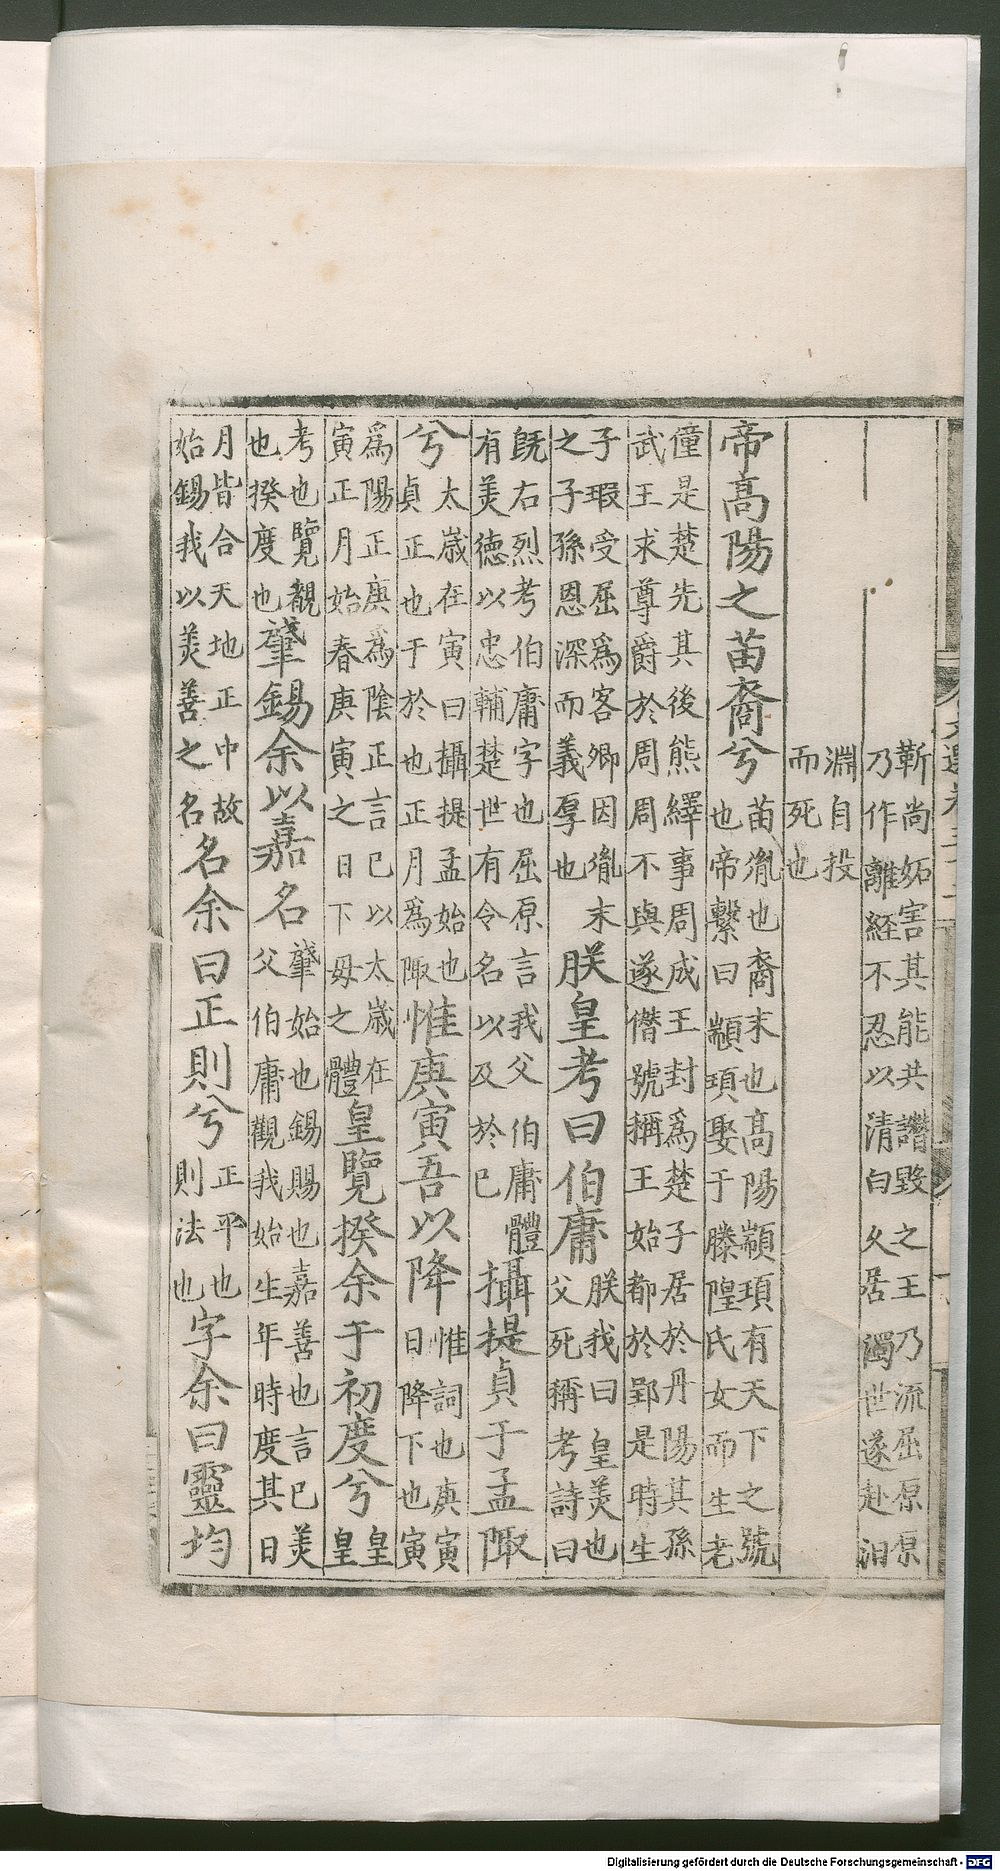 靳尚妬害其能共譖毀之王乃流屈原原
乃作離経不忍以清白久居濁世遂赴汨
淵自投
而死也
帝高陽之苗裔兮
苗胤也裔末也高陽顓頊有天下之號
也帝繫曰顓頊娶于滕隍氏女而生老
僮是楚先其後熊繹事周成王封爲楚子居於丹陽其孫
武王求尊爵於周周不與遂僭號稱王始都於郢是時生
子瑕受屈爲客卿因胤末
之子孫恩深而義厚也
朕皇考曰伯庸
朕我曰皇羙也
父死稱考詩曰
旣右烈考伯庸字也屈原言我父伯庸體
有羙德以忠輔楚世有令名以及於已
攝提貞于孟陬
兮
太歲在寅曰攝提孟始也
貞正也于於也正月爲陬
惟庚寅吾以降
惟詞也庚寅
日降下也寅
爲陽正庚爲陰正言已以太歲在
寅正月始春庚寅之日下毋之體
皇覽揆余于初度兮
皇
皇
考也覽觀
也揆度也
肇錫余以嘉名
肇始也錫賜也嘉善也言已羙
父伯庸觀我始生年時度其日
月皆合天地正中故
始錫我以羙善之名
名余曰正則兮
正平也
則法也
字余曰靈均
Digitalisierung gefördert durch die Deutsche Forschungsgemeinschaft - DFG